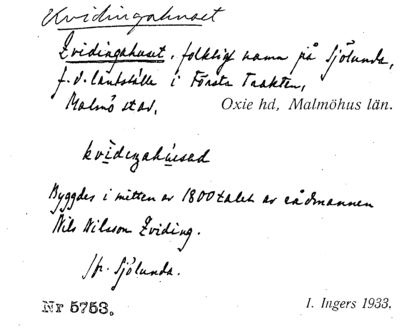 Kvidingahuset
Qvidingahuset, folkligt namn på Sjölunda,
f.d. lantställe i Första Trakten,
Malmö stad.
Oxie hd, Malmöhus län.
kvidezahúsad
Byggdes i mitten av 1800 talet av rådmannen
Nils Nilsson Qviding.
Jfr. Sjölunda.
Nr 5753.
I. Ingers 1933.